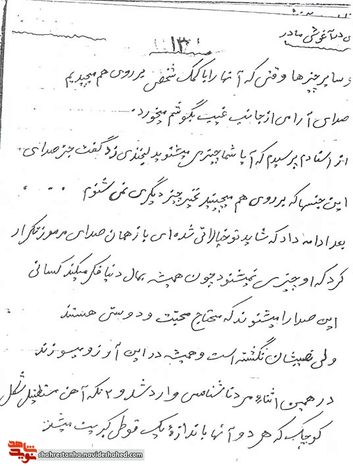 در آغوش مادر
۱۳
و سایر چیزها وقتی که آنها را با کمک شخصی بر روی هم میچیدیم
صدای آرامی از جانب غیب بگوشم میخورد.
از استادم پرسیدم که آیا شما چیزی میشنوید لبخندی زد گفت جز صدای
این جنسها که بر روی هم میچینید بغیر چیز دیگری نمی شنوم
بعد ادامه داد که شاید تو خیالاتی شده ای باز همان صدای مرموز تکرار
کرد که او چیزی نمیشنود چون همیشه بمال دنیا فکر میکند کسانی
این صدا را میشنوند که محتاج محبت و دوستی هستند
ولی نصیبشان نگشته است و همیشه در این آرزو میسوزند
در همین اثناء مرد ناشناسی وارد شد و ۲ تکه آهن مستطیل شکل
کوچک که هر دو آنها باندازه یک قوطی کبریت میشد
نوید شاهد
shahretanha.navideshahed.com